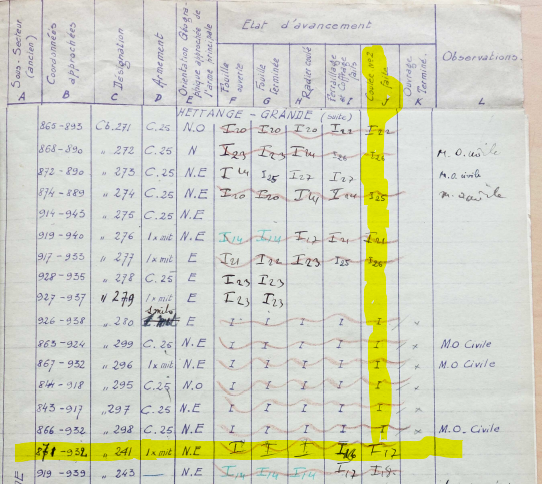 Etat d'avancement
Sous-Secteur (ancien) Coordonnées approchées Désignation Armement Orientation Géographique approchée de l'arme principale Fouille ouverte Fouille Terminée Radier coulé Ferraillage et Coffrage faits Coulée N°2 faite Ouvrage Terminé. Observations.
A B C D E F G H I J K L
HETTANGE - GRANDE (suite)
865-893 Cb.271 C.25 N.O I20 I20 I20 I22 I22
868-890 " 272 C.25 N I23 I23 I14 I26 I26 M.O. civile
872-890 " 273 C.25 N.E I14 I25 I27 I27 M.O. civile
874-889 " 274 C.25 N.E I20 I20 I14 I14 I25 M.O. civile
914-945 " 275 C.25 N.E
919-940 " 276 1x mit N.E I14 I14 I17 I21 I21
917-935 " 277 1x mit E I21 I22 I23 I25 I26
928-935 " 278 C.25 E I23 I23
927-937 " 279 1x mit E I23 I23
926-938 " 280 E I I I I I x
863-924 " 299 C.25 N.E I I I I I x M.O Civile
867-932 " 296 1x mit N.E I I I I I x M.O Civile
844-918 " 295 C.25 N.O I I I I I x
843-917 " 297 C.25 N.E I I I I I x
866-932 " 298 C.25 N.E I I I I I x M.O. Civile
871-932 " 241 1x mit N.E I I I I16 I17
919-939 " 243 — N.E I14 I14 I14 I17 I18